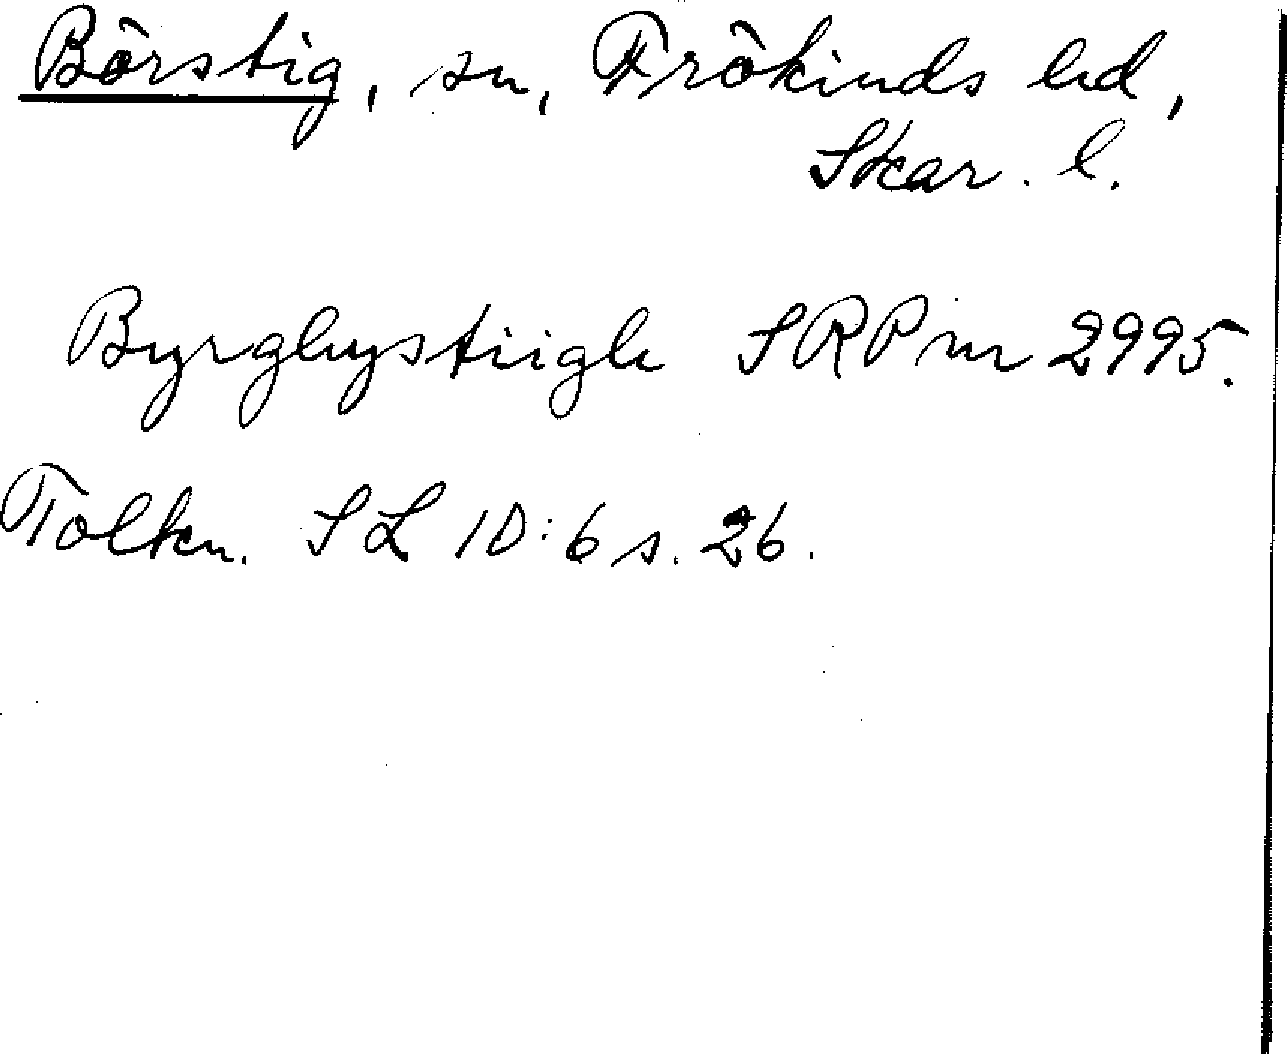 Börstig, sn, Frökinds hd,
Skar. l.
Byrghystiigh SRP nr 2995.
Tolkn. SL 10:6 s. 26.